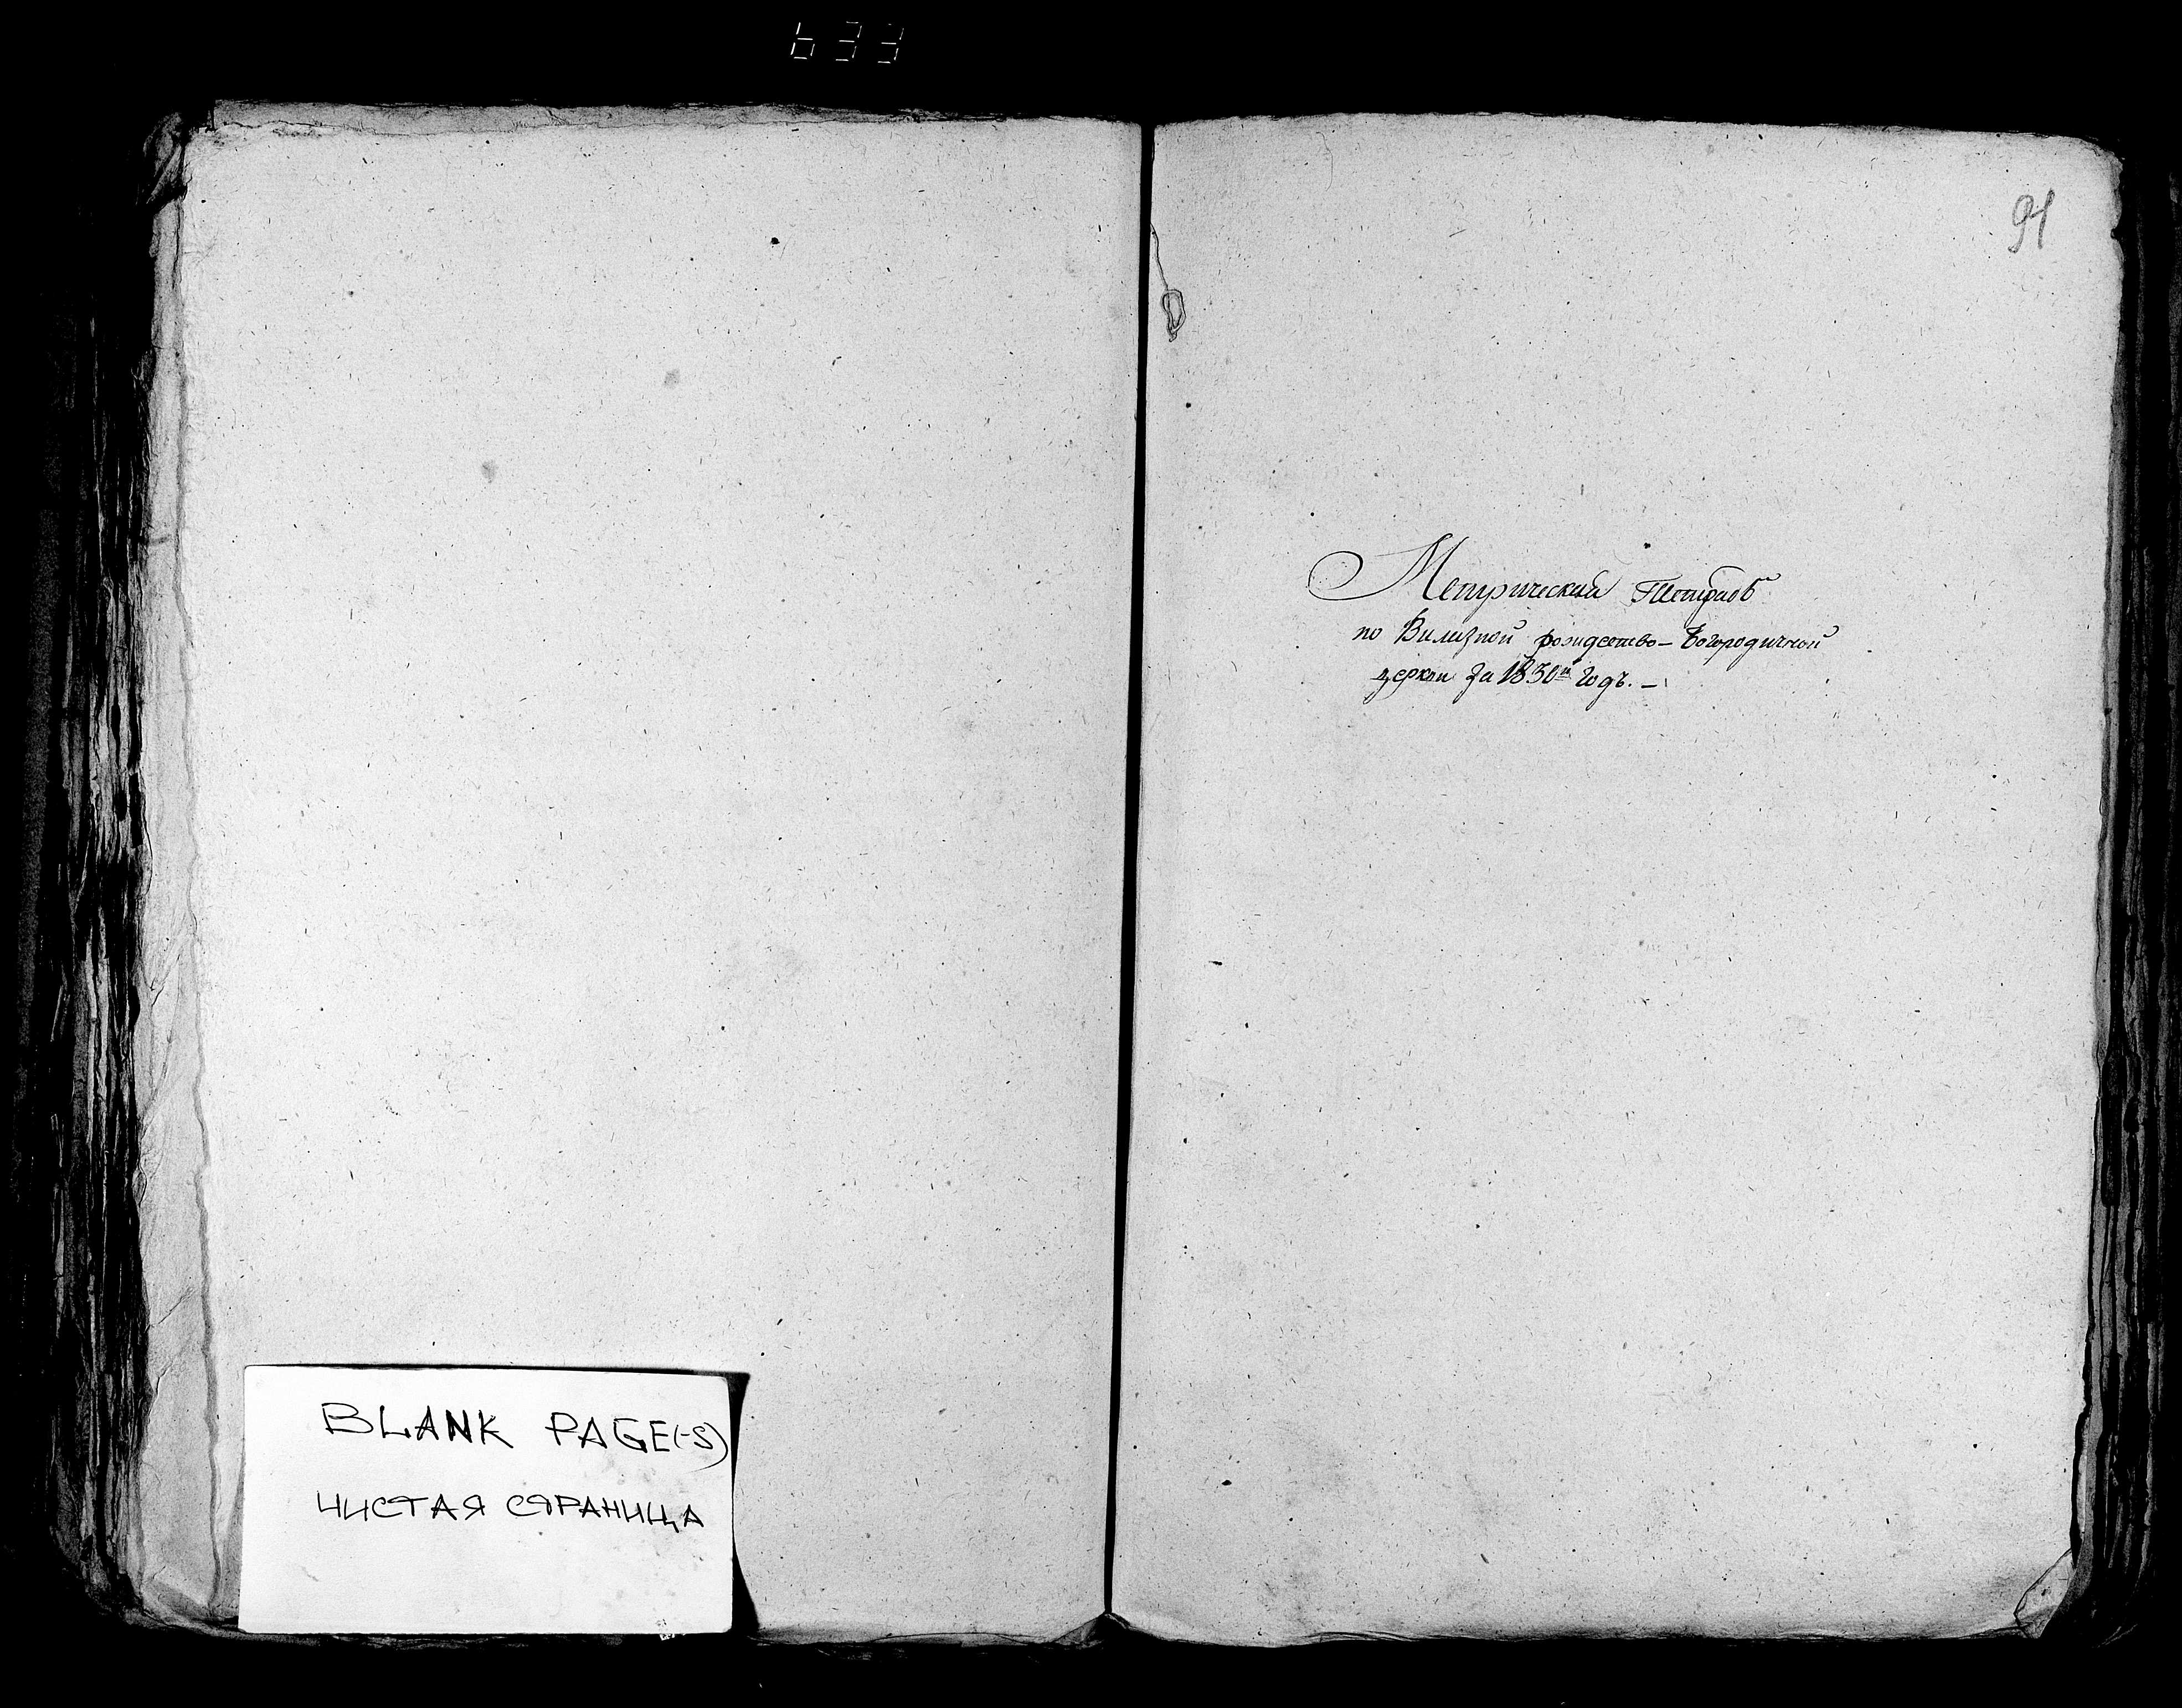 633
91
Метрический Тетрадь
по Вилизной рождество-Богородичной
церкви за 1830й годъ.-
BLANK PAGE(-S)
ЧИСТАЯ СТРАНИЦА